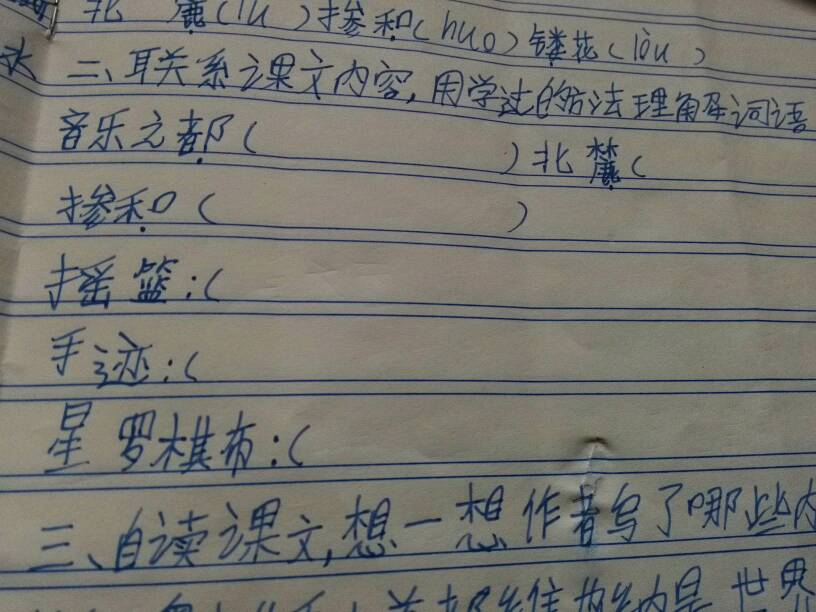 北麓(lù)掺和(huo)镂花(lòu)
二、联关系课文内容,用学过的方法理解词语
音乐之都( )北麓(
掺和( )
摇篮:(
手迹:(
星罗棋布:(
三、自读课文,想一想作者写了哪些内
世界